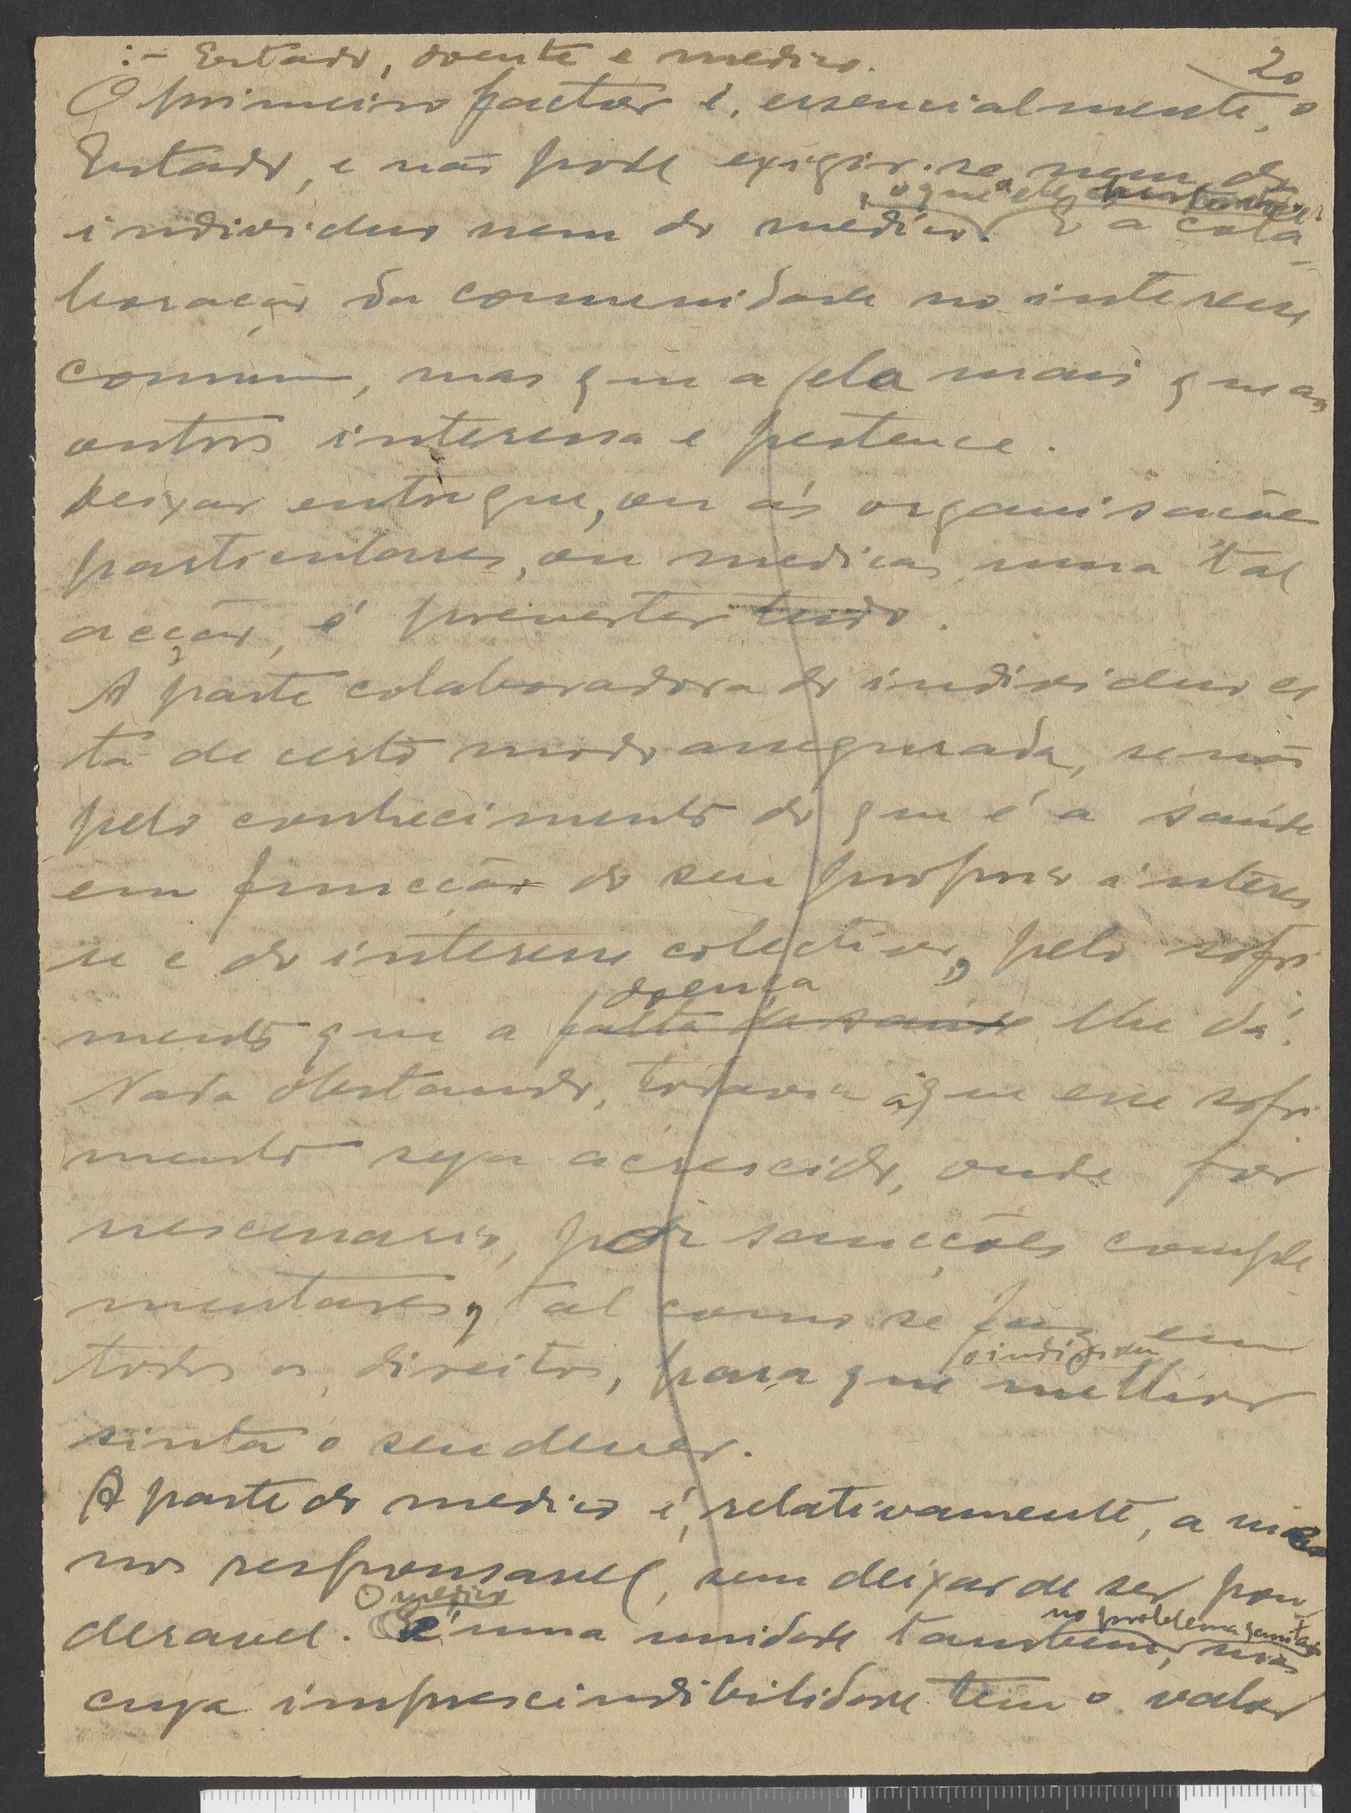 :- Estado, doente e medico.
20
O primeiro factor é, essencialmente, o
Estado, e não pode exigir-se nem do
, o que a ele
individuo nem do medico. É a cola-
boração da comunidade no interesse
comum, mas que a ela mais que aos
outros interessa e pertence.
Deixar entregue, ou ás organisações
particulares, ou medicas, uma tal
acção, é preverter tudo.
A parte colaboradora do individuo es
tá de certo modo assegurada, se não
pelo conhecimento do que é a saúde
em funcção do seu proprio interes
se e do interesse colectivo, pelo sofri
doença
mento que a falta da saúde lhe dá.
Nada obstando, todavia a que esse sofri
mento seja acrescido, onde fôr
nescessario, por sancções comple
mentares, tal como se faz em
todos os direitos, para que melhor
o individuo
sinta o seu dever.
A parte do medico é, relativamente, a me
nos responsavel, sem deixar de ser pon
O medico
no problema sanitario
deravel. é uma unidade tambem, mas
cuja imprescindibilidade tem o valor